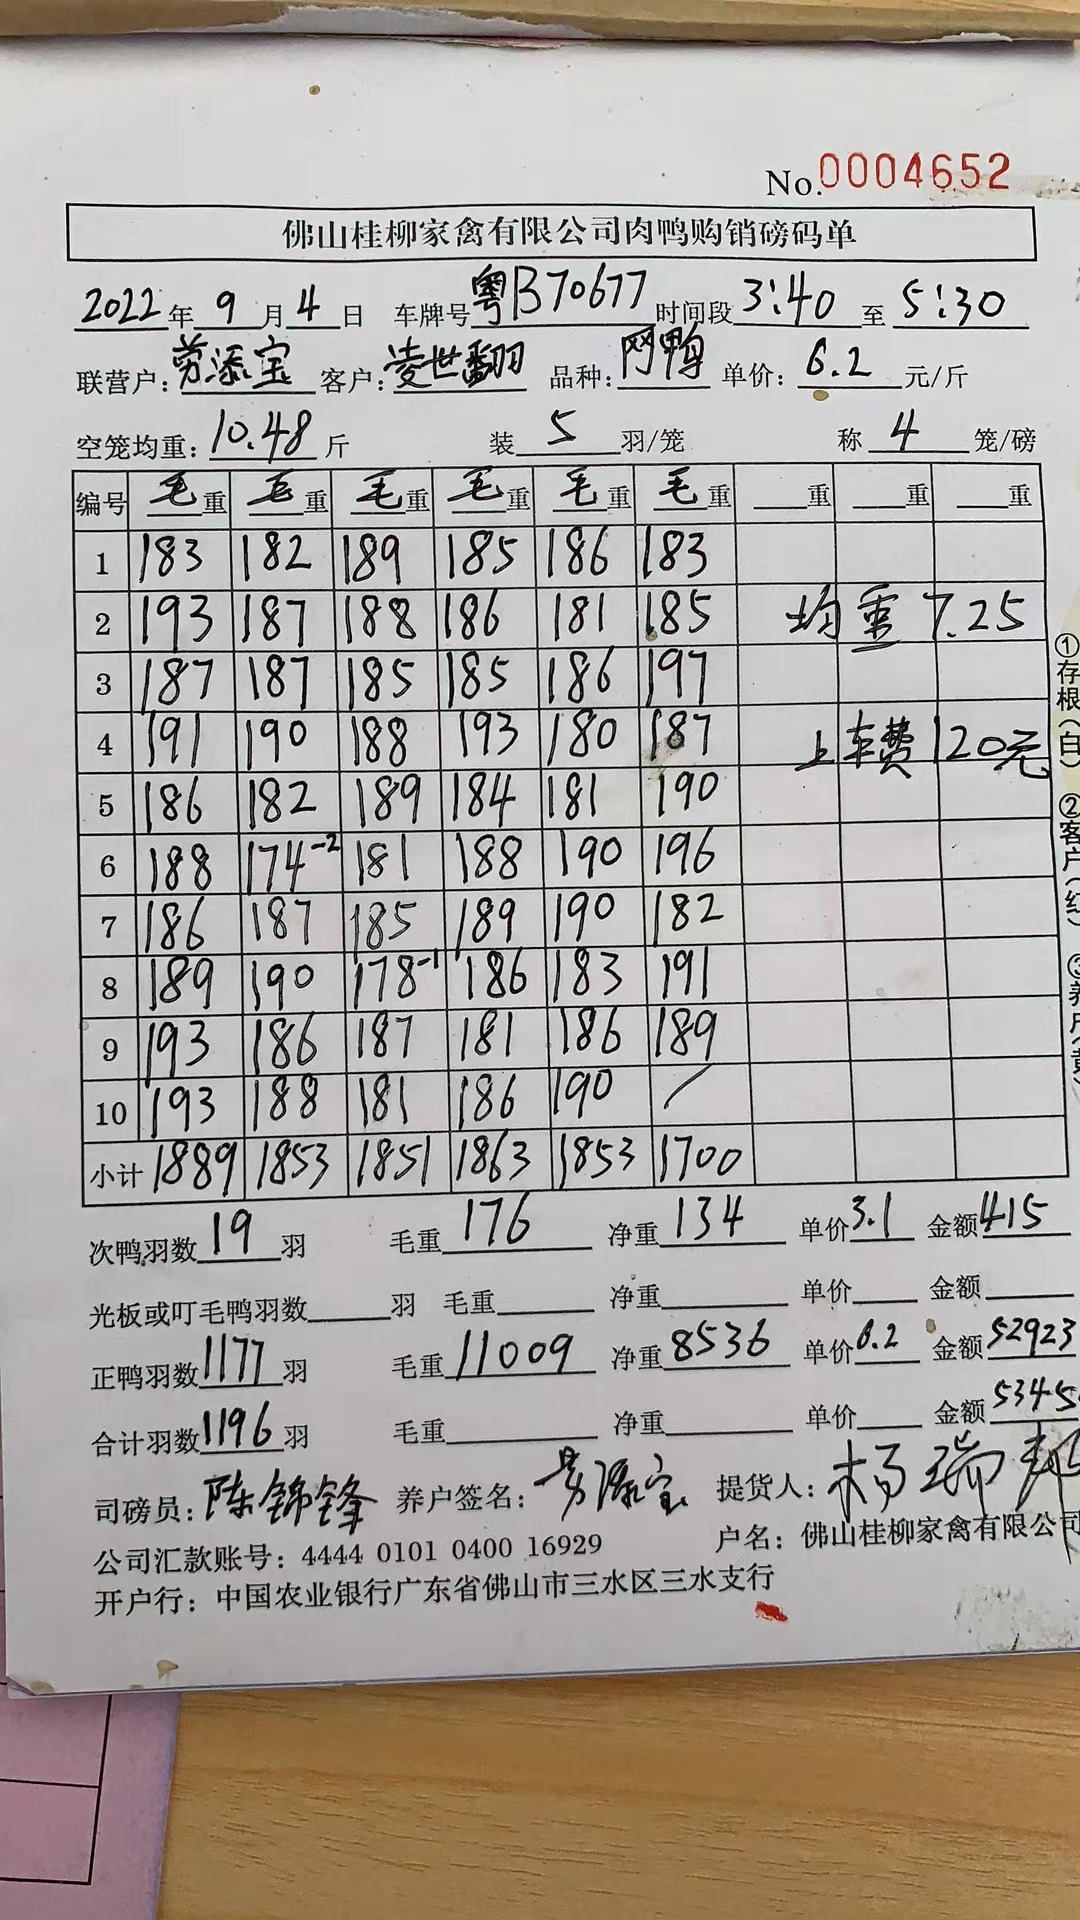 No.0004652
佛山桂柳家禽有限公司肉鸭购销磅码单
2022年 9 月 4 日 车牌号 粤B70677 时间段 3:40 至 5:30
联营户:劳添宝 客户:凌世翻 品种:网鸭 单价: 6.2 元/斤
空笼均重: 10.48 斤 装 5 羽/笼 称 4 笼/磅
编号 毛重 毛重 毛重 毛重 毛重 毛重 重 重 重
1 183 182 189 185 186 183
2 193 187 188 186 181 185 均重 7.25
3 187 187 185 185 186 197
4 191 190 188 193 180 187 上车费 120元
5 186 182 189 184 181 190
6 188 174-2 181 188 190 196
7 186 187 185 189 190 182
8 189 190 178-1 186 183 191
9 193 186 187 181 186 189
10 193 188 181 186 190 /
小计 1889 1853 1851 1863 1853 1700
次鸭羽数 19 羽 毛重 176 净重 134 单价 3.1 金额 415
光板或叮毛鸭羽数 羽 毛重 净重 单价 金额
正鸭羽数 1177 羽 毛重 11009 净重 8536 单价 6.2 金额 52923
合计羽数 1196 羽 毛重 净重 单价 金额 5345
司磅员: 陈锦锋 养户签名: 劳添宝 提货人: 杨瑞邦
公司汇款账号: 4444 0101 0400 16929 户名: 佛山桂柳家禽有限公司
开户行: 中国农业银行广东省佛山市三水区三水支行
①存根(白) ②客户(红) ③养户(黄)